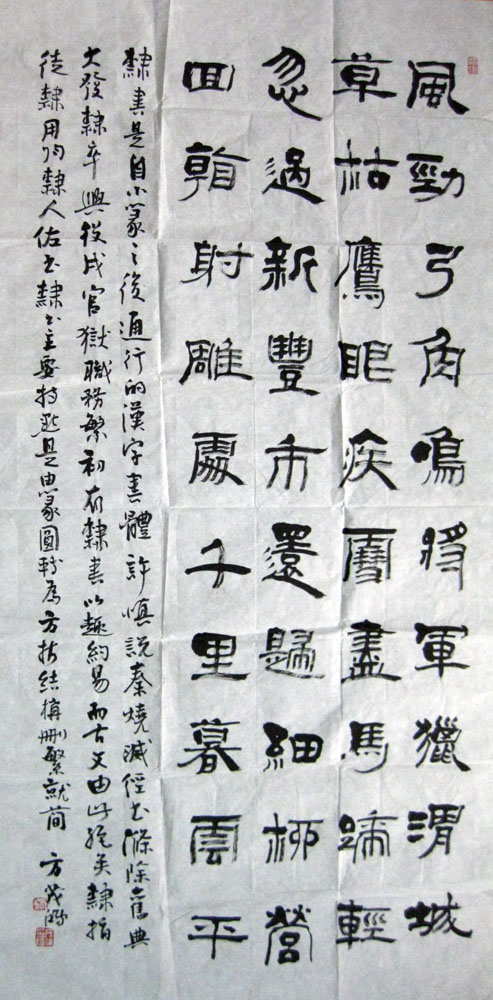 風勁弓角鳴將軍獵渭城
草枯鷹眼疾雪盡馬蹄輕
忽過新豐市還歸細柳營
回看射雕處千里暮雲平
隸書是自小篆之後通行的漢字書體許慎說秦燒滅經書滌除舊典
大發隸卒興役戍官獄職務繁初有隸書以趣約易而古文由此絕矣隸指
徒隸用隸人佐書隸書主要特點是由篆圓轉為方折結構刪繁就简 方茂